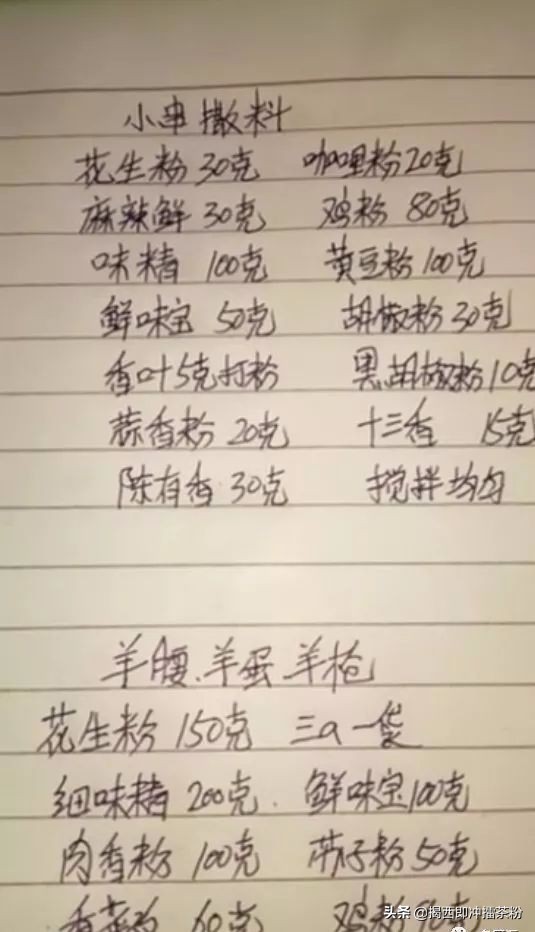 小串撒料
花生粉 30克 咖喱粉 20克
麻辣鲜 30克 鸡粉 80克
味精 100克 黄豆粉 100克
鲜味宝 50克 胡椒粉 30克
香叶5克打粉 黑胡椒粉10克
蒜香粉 20克 十三香 15克
陈有香 30克 搅拌均匀
羊腰.羊蛋 羊枪
花生粉 150克 三a一袋
细味精 200克. 鲜味宝100克
肉香粉 100克 带子粉 50克
60克 鸡粉
头条 @揭西即冲擂茶粉